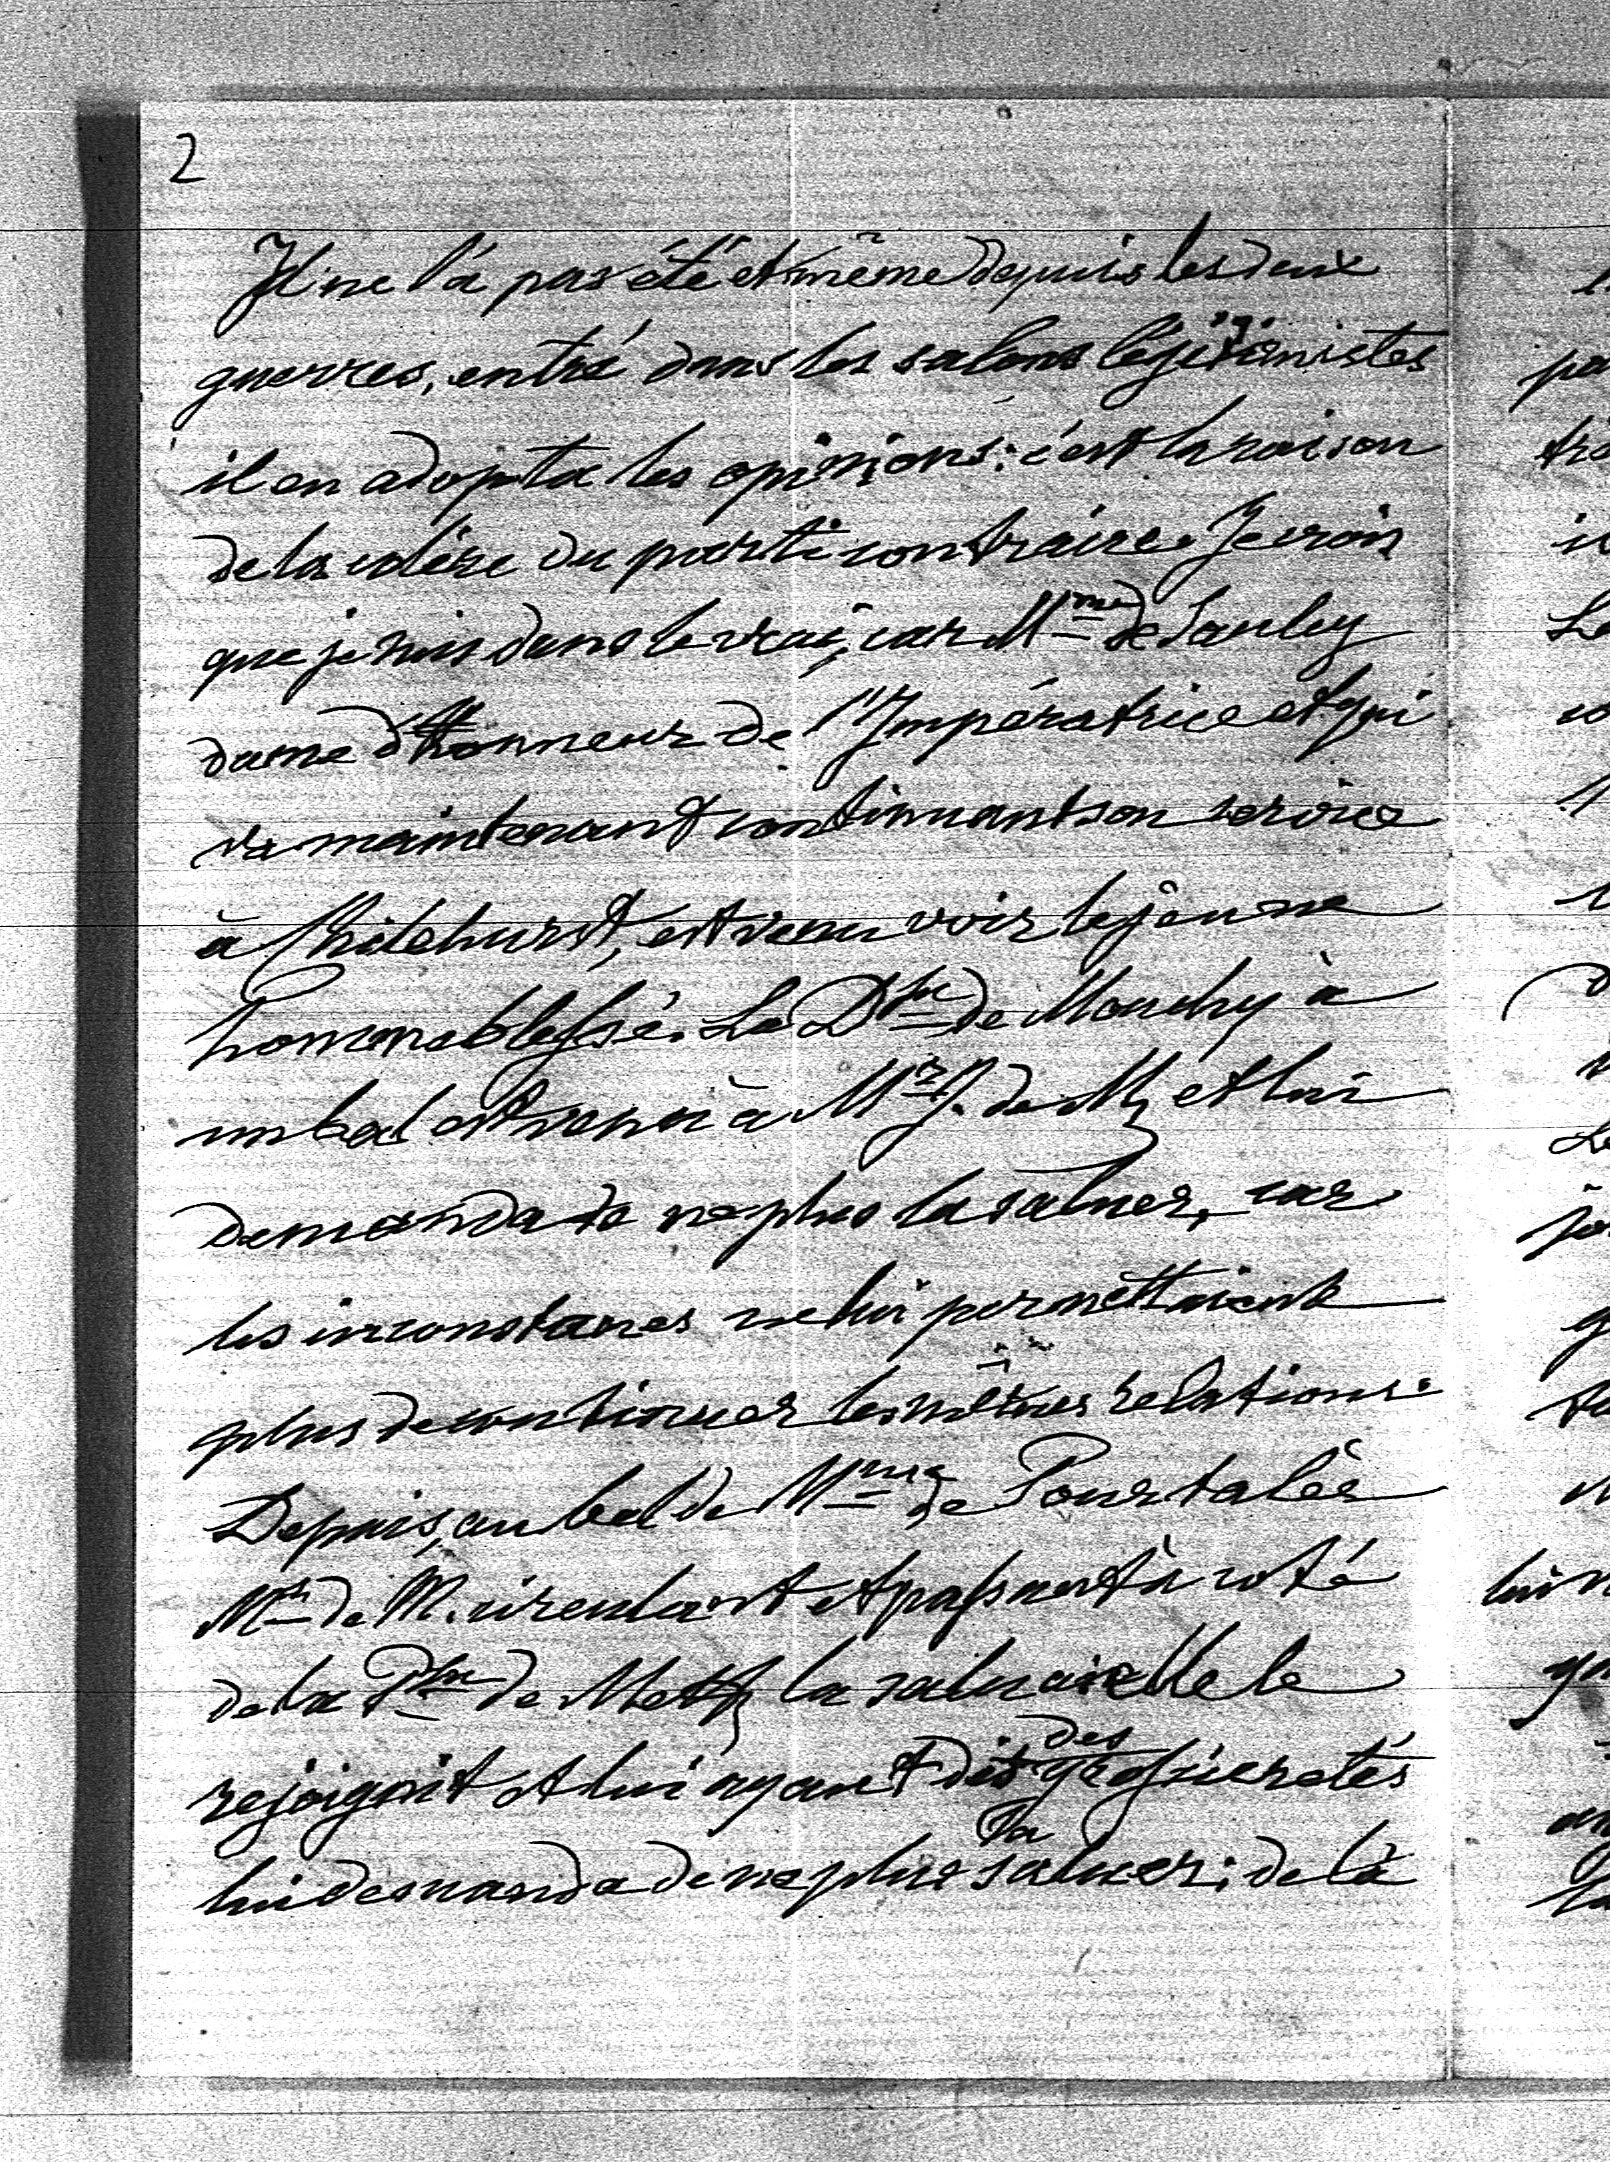 2
Il ne l'a pas été et même depuis les deux
guerres, entré dans les salons légitimistes
il en adopta les opinions: c'est la raison
de la colère du parti contraire. Je crois
que je suis dans le vrai, car Mme de Saulcy
dame d'Honneur de l'Impératrice et qui
va maintenant continuant son service
à Chilehurst, est venu voir le jeune
homme blessé. La Dsse de Mouchy à
un bal est venu à Mr J. de M, et lui
demanda de ne plus la saluer, car
les circonstances ne lui permettaient
plus de continuer les mêmes relations.
Depuis, au bal de Mme de Pourtalès
Mr de M. circulant et passant à coté
de la Psse de Mett la salua: elle le
rejoignit et lui ayant dit des grossieretés
lui demanda de ne plus la saluer; de là